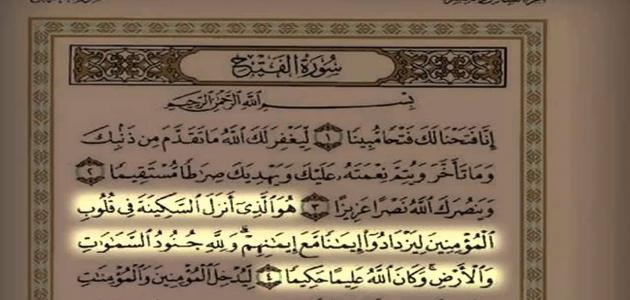 سُورَةُ الفَتْحِ
بِسْمِ اللَّهِ الرَّحْمَٰنِ الرَّحِيمِ
إِنَّا فَتَحْنَا لَكَ فَتْحًا مُّبِينًا ۝١ لِّيَغْفِرَ لَكَ اللَّهُ مَا تَقَدَّمَ مِن ذَنۢبِكَ
وَمَا تَأَخَّرَ وَيُتِمَّ نِعْمَتَهُۥ عَلَيْكَ وَيَهْدِيَكَ صِرَٰطًا مُّسْتَقِيمًا ۝٢
وَيَنصُرَكَ اللَّهُ نَصْرًا عَزِيزًا ۝٣ هُوَ الَّذِىٓ أَنزَلَ السَّكِينَةَ فِى قُلُوبِ
الْمُؤْمِنِينَ لِيَزْدَادُوٓا۟ إِيمَٰنًا مَّعَ إِيمَٰنِهِمْ ۗ وَلِلَّهِ جُنُودُ السَّمَٰوَٰتِ
وَالْأَرْضِ ۚ وَكَانَ اللَّهُ عَلِيمًا حَكِيمًا ۝٤ لِّيُدْخِلَ الْمُؤْمِنِينَ وَالْمُؤْمِنَٰتِ